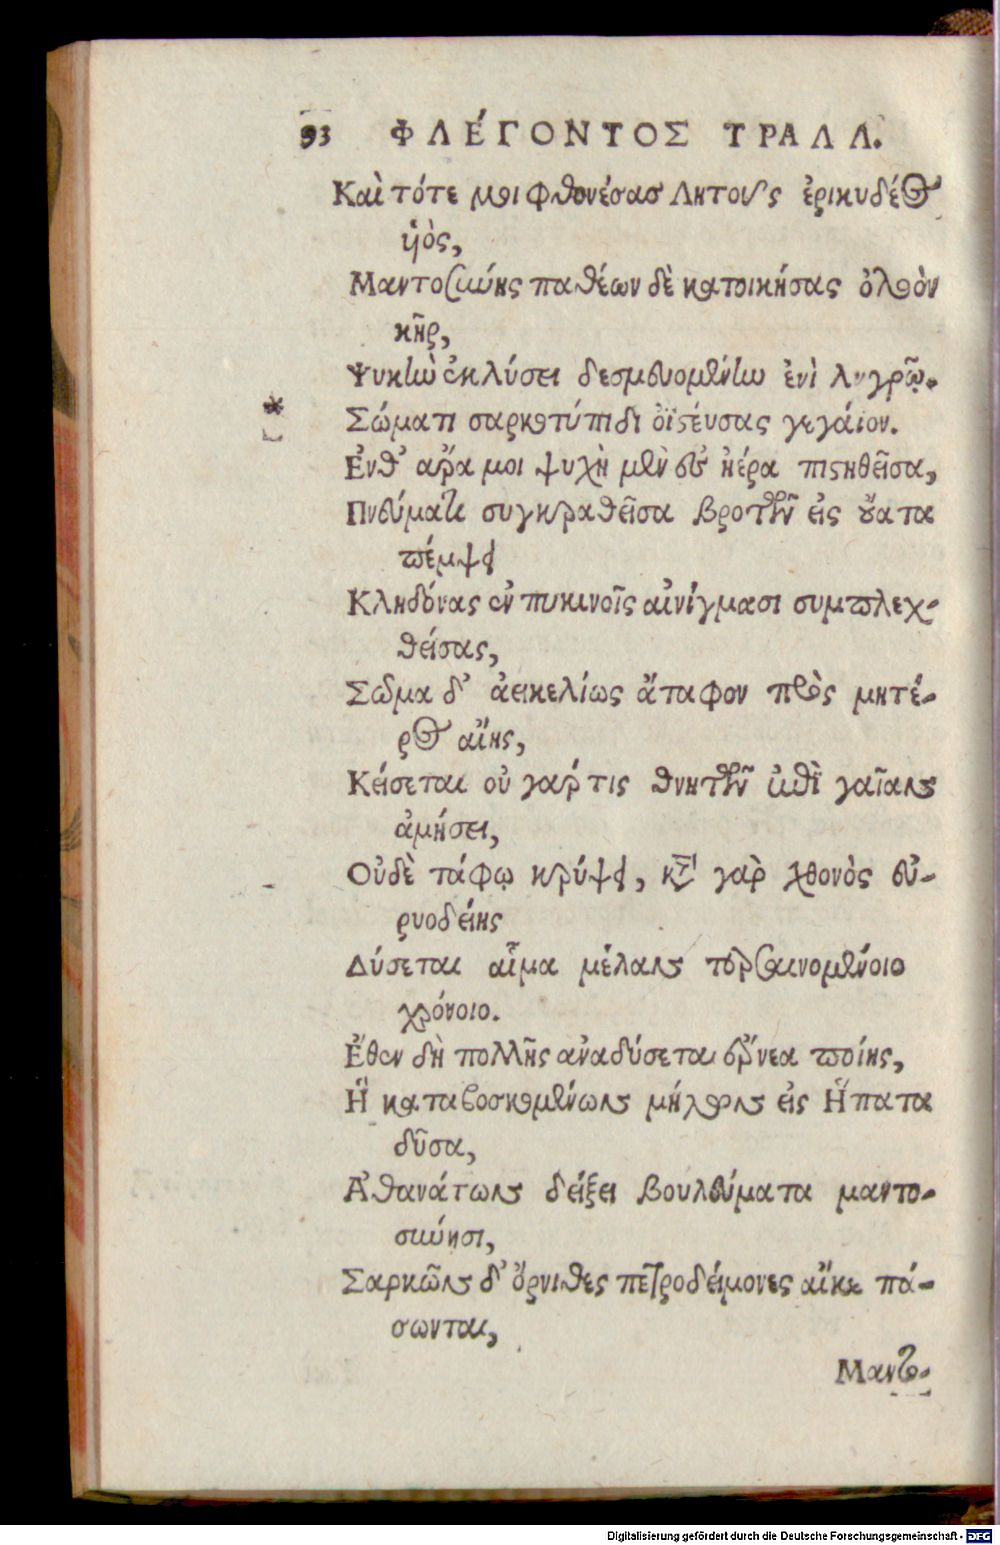 93 ΦΛΈΓΟΝΤΟΣ ΤΡΑΛΛ.
Καὶ τότε μοι φθονέσας Λητοῦς ἐρικυδέος
ἡὸς,
Μαντοσύνης παθέων δὲ κατοικήσας ὀλοὸν
κῆρ,
Ψυκὴν ἐκλύσει δεσμευομένην ἐνὶ λυγρῷ.
* Σώματι σαρκοτύπιδι ὀϊστεύσας γεγάιον.
Ἔνθ' ἄρα μοι ψυχὴ μὲν ἐς ἠέρα πιστηθεῖσα,
Πνεύματι συγκραθεῖσα βροτῶν εἰς οὔατα
πέμψει
Κληδόνας ἐν πυκινοῖς αἰνίγμασι συμπλεχ-
θείσας,
Σῶμα δ' ἀεικελίως ἄταφον πρὸς μητέ-
ρος αἴης,
Κείσεται οὐ γάρ τις θνητῶν ἐπὶ γαῖαν
ἀμήσει,
Οὐδὲ τάφῳ κρύψει, κατὰ γὰρ χθονὸς εὐ-
ρυοδείης
Δύσεται αἷμα μέλαν τερσαινομένοιο
χρόνοιο.
Ἔθεν δὴ πολλῆς ἀναδύσεται ἔρνεα ποίης,
Ἣ καταβοσκομένων μήλων εἰς Ἥπατα
δῦσα,
Ἀθανάτων δείξει βουλεύματα μαντο-
σύνησι,
Σαρκῶν δ' ὄρνιθες πετροδείμονες αἴκε πά-
σωνται,
Μαντο-
Digitalisierung gefördert durch die Deutsche Forschungsgemeinschaft - DFG